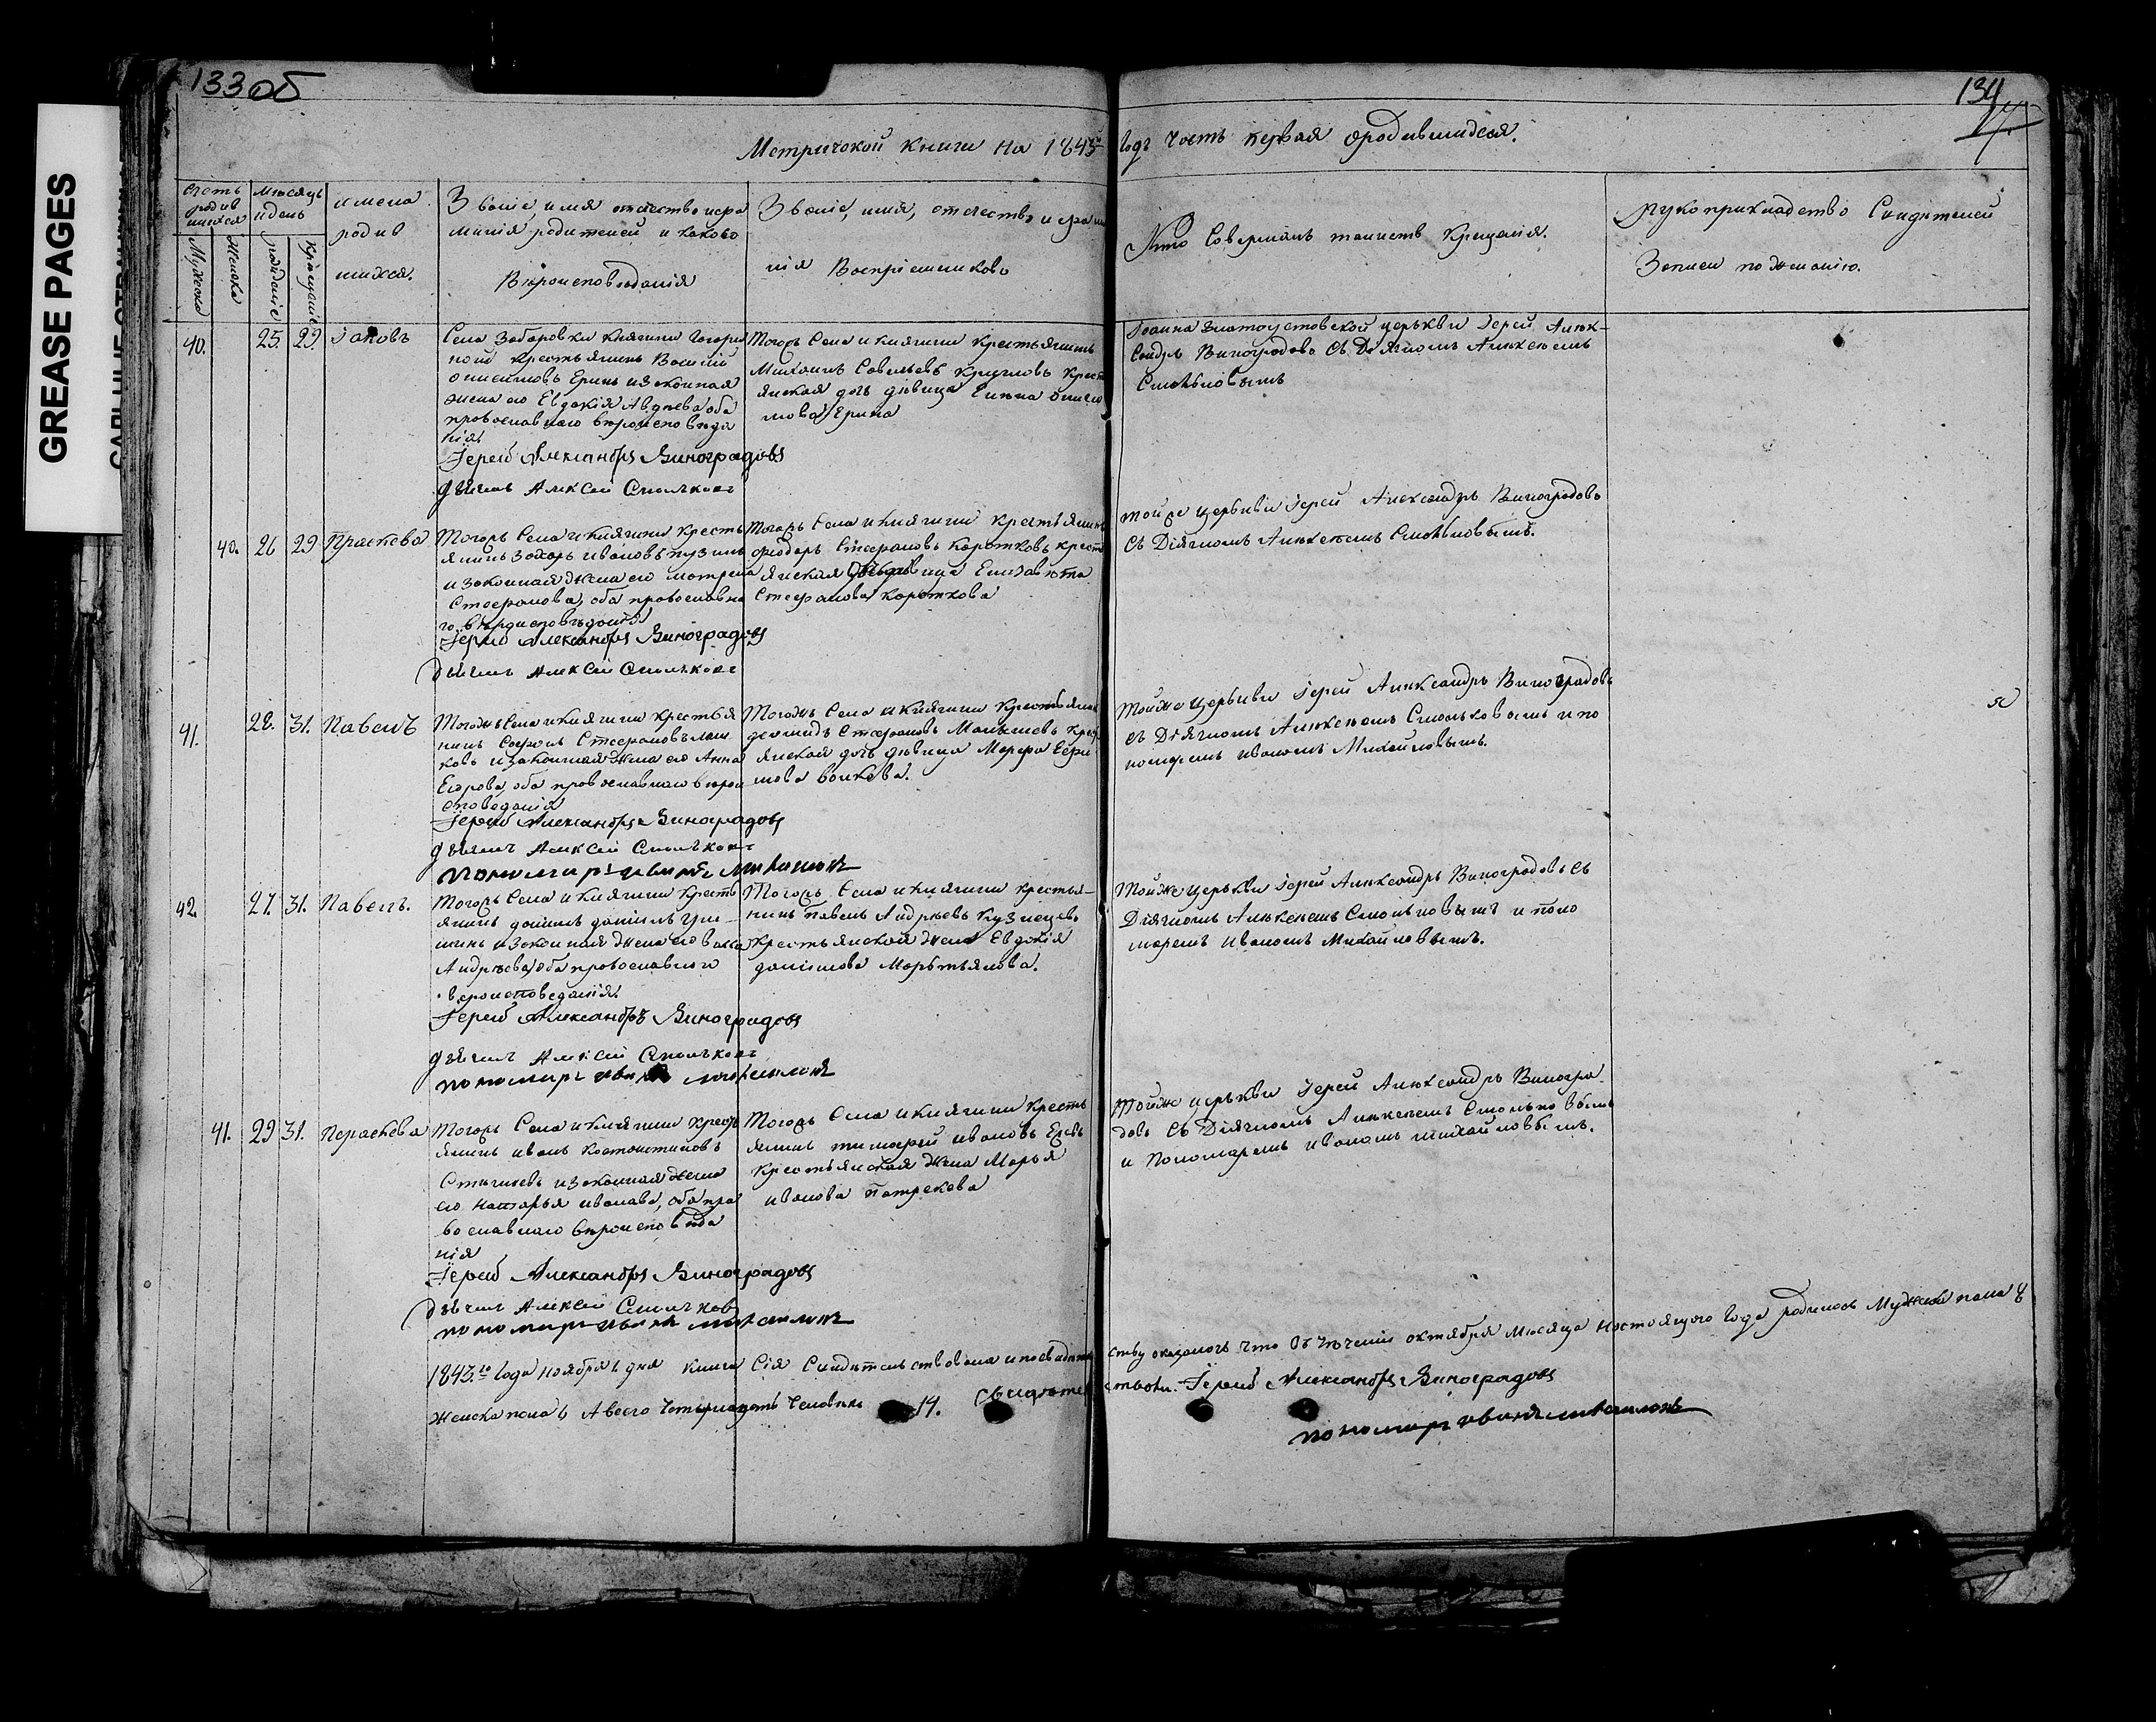 133 об
134
17.
GREASE PAGES
Метрической Книги На 1843й Годъ Часть первая ородившихся.
Счетъ родив шихся
Мужеска
Женска
Мѣсяцъ идень
рождение
Крещение
имена
родив
шихся.
Звание, имя отчество ифа
милия родителей и какова
Вѣроисповѣдания
Звание, имя, отчество и фами
лия Восприемниковъ
Кто Совершалъ таинств Крещения.
Рукоприкладство Свидѣтелей
Записи пожеланию.
40.
25. 29. Iаковъ
Села Забаровки княгини Гагари
ной крестьянинъ Василий
Онисимовъ Еринъ изаконная
жена его Евдокия Авдѣева оба
православнаго вѣроисповѣда
ния
Iерей Александръ Виноградовъ
Дьячекъ Алексей Смольковъ
Тогожъ Села икнягини крестьянинъ
Михаилъ Савельевъ Кругловъ Крест
янская дочь дѣвица Онисі
мова Ерина
Iоанна Златоустовской церькви Iерей Алек-
сандръ Виноградовъ Съ Дiячкомъ Алексеемъ
Смольковымъ
40. 26 29 Праскева
Тогожъ Села икнягини Кресть
янинъ Захаръ Ивановъ Пузинъ
изаконная жена его матрена
Стефанова, оба православна
го вѣроисповѣдания
Iерей Александръ Виноградовъ
Дьячекъ Алексей Смольковъ
Тогожъ Села икнягини крестьянинъ
Фиодоръ Стефановъ Коротковъ крест
янская дѣвица Елизавета
Стефанова Короткова
Тойже церькви Iерей Александръ Виноградовъ
Съ Дiячкомъ Алексеемъ Смольковымъ.
41. 28. 31. Павелъ
Тогожъ Села икнягини крестья
нинъ Стефановъ
ковъ изаконная жена его Анна
Егорова, оба православнаго вѣрои
споведания
Iерей Александръ Виноградовъ
Дьячекъ Алексей Смольковъ
пономарь иванъ михаиловъ
Тогожъ Села икнягини Крестьянинъ
Стефановъ Малышевъ Крест
янская дочь дѣвица Марфа Ефи
мова Волкова.
Тойже церькви Iерей Александръ Виноградовъ
съ Дiячкомъ Алексеемъ Смольковымъ ипо
номаремъ иваномъ Михайловымъ.
42. 27. 31. Павелъ.
Тогожъ Села икнягини Кресть
янинъ данилъ даниловъ
изаконная жена его
Андрѣева, оба православнаго
вероисповедания.
Iерей Александръ Виноградовъ
Дьячекъ Алексей Смольковъ
пономарь иванъ михаиловъ
Тогожъ Села икнягини крестья-
нинъ Павелъ Андрѣевъ Кузнецовъ
Крестьянская жена Евдокiя
данилова Мартьянова.
Тойже церькви Iерей Александръ Виноградовъ Съ
Дiячкомъ Алексеемъ Смольковымъ и поно
маремъ Иваномъ Михайловымъ.
41. 29 31. Параскева
Тогожъ Села икнягини Кресть
янинъ иванъ Костонтиновъ
изаконная жена
его Наталья иванава, оба пра
вославнаго вѣроисповѣда
ния
Iерей Александръ Виноградовъ
Дьячекъ Алексей Смольковъ
пономарь иванъ михаиловъ
Тогожъ Села икнягини Кресть
янинъ тимофей ивановъ
Крестьянская жена Марья
иванова Патрекева
Тойже церькви Iерей Александръ Виногра-
довъ Съ Дiячкомъ Алексеемъ Смольковымъ
и Пономаремъ иваномъ михайловымъ.
1843.го Года ноября 1 дня книга Сiя Свидѣтельствована ипосвидѣтель
ству оказалось что Въ течении октября Мѣсяца настоящего Года родилось Мужеска пола 8
Женска пола 6 Авсего Четырнадцать Человѣкъ 14. Свидѣтель
ствовали. Iерей Александръ Виноградовъ
пономарь иванъ михаиловъ